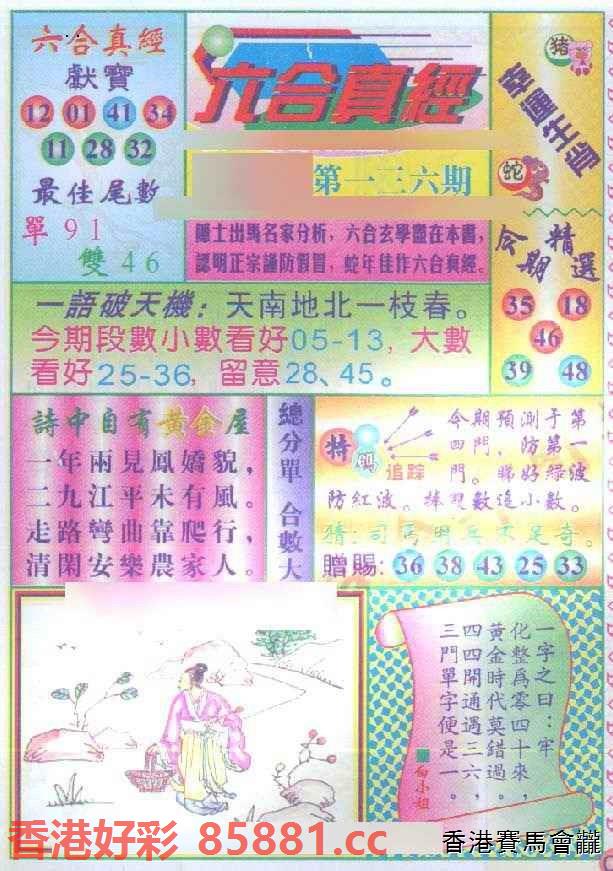 六合真經
獻寶
12 01 41 34
11 28 32
最佳尾數
單 91
雙 46
六合真經
第一三六期
隱士出馬名家分析，六合玄學盡在本書，
認明正宗謹防假冒，蛇年佳作六合真經。
豬
蛇
今期
精選
35 18
46
39 48
一語破天機：天南地北一枝春。
今期段數小數看好05-13，大數
看好25-36，留意28、45。
詩中自有黃金屋
一年兩見鳳嬌貌，
二九江平未有風。
走路彎曲靠爬行，
清閑安樂農家人。
總分單 合數大
特碼
追踪
今期預測于第
四門，防第一
門。睇好綠波
防紅波。 數追小數。
猜：司馬 兵不足奇。
贈賜：36 38 43 25 33
一字之曰：牢
化整為零四十來，
黃金時代莫錯過。
四四開通遇三六，
三門單字便是一。
白小姐
香港好彩 85881.cc
香港賽馬會